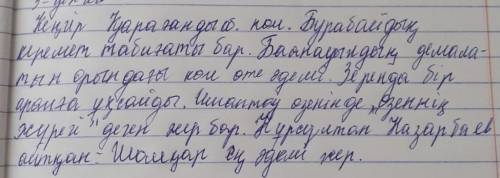 Кеңгір Қарағанды об. көл. Бурабайдың
керемет табиғаты бар. Баянауылдың демала-
тын орындағы көл өте әдемі. Зеренда бір
ұқсайды. Имантау өзенінде „Өзеннің
жүрегі" деген жер бар. Нұрсұлтан Назарбаев
айтқан - Шалқар ең әдемі жер.